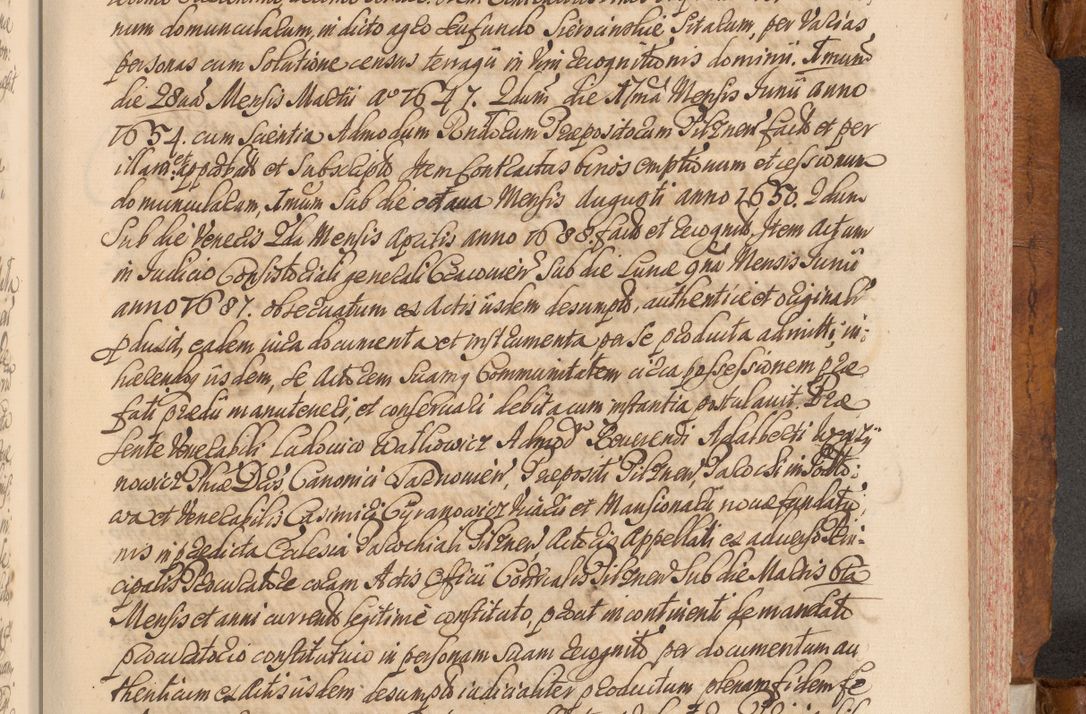 num domuncularum, in dicto agro seu fundo Siersinskie Sitarum, per varias
personas cum Solutione census terragii in Vim recognitionis dominii. Imum
die 28va Mensis Martii ao 1647. 2dum die 17ma Mensis Junii anno
1654. cum Scientia Admodum Rndorum Praepositorum Pilznen factos et per
illam et approbatt et Subscriptos Item Contractus binos emptionum et cessionum
domuncularum, Imum Sub die octava Mensis Augusti anno 1650. 2dum
Sub die Veneris 2da Mensis Aprilis anno 1688. factos et recognitos, Item Actum
in Judicio Consistoriali generali Cracovien Sub die Lunae qnta Mensis Junii
anno 1687. observatum ex Actis iisdem desumptos, authentice et originalr
pdusit, eadem iura documenta et instrumenta per se producta admitti, in:
haerendoq iisdem, se Actorem suamq Communitatem circa possessionem prae
fati praedii manuteneri, et conservari debita cum instantia postulavit. Prae
sente Venerabili Ludovico Watkowicz Admod. Reverendi Adalberti Wen
nowicz Phiae Dris Canonici Tarnovien, Praepositi Pilznen, Parochi in
et Venerabilis Casimiri Cyranowicz Vicarii et Mansionarii novae fundatio:
nis in praedicta Ecclesia Parochiali Pilznen Actoris Appellati ex adverso Prin:
cipalis Procuratore coram Actis Officii Sub die Martis 6ta
Mensis et anni current legitime constituto, prout in continenti de mandato
procuratorio constitutivo in personam suam recognito per documentum au
thenticum ex Actis iisdem desumptos iudicialiter productum plenam fidem fe